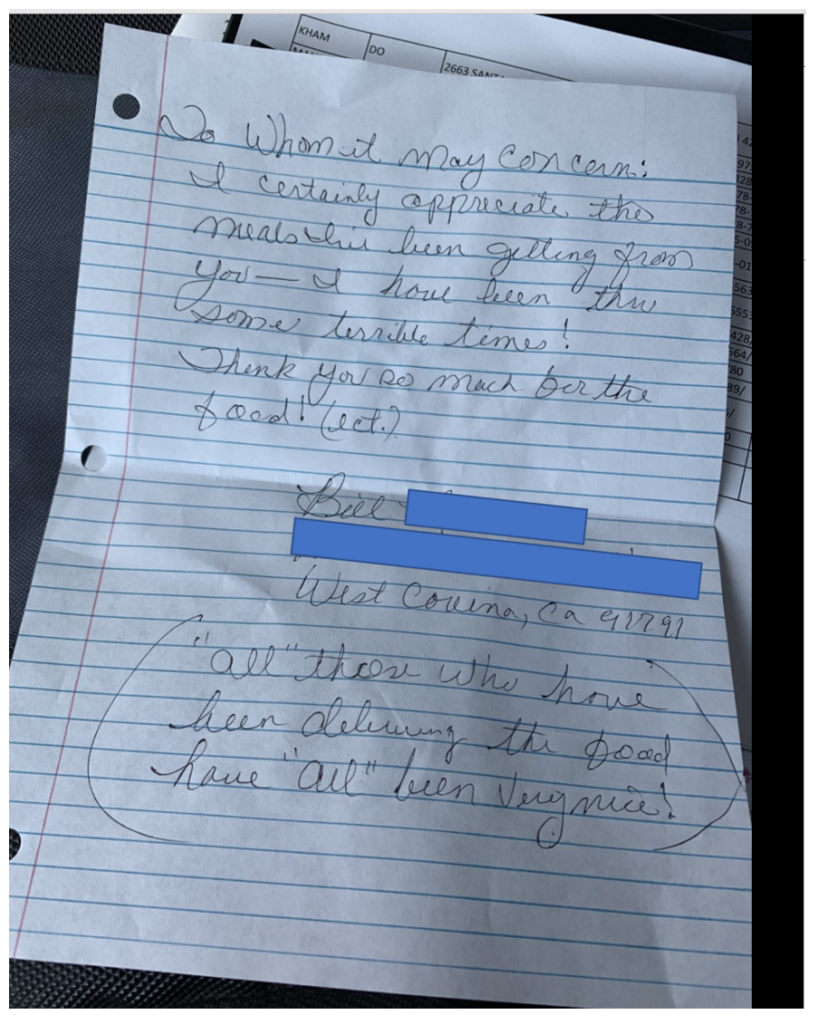 KHAM DO 2663 SANTA
To Whom it may concern:
I certainly appreciate the
meals I've been getting from
you — I have been thru
some terrible times!
Thank you so much for the
food! (ect.)
Bill
West Covina, Ca 91791
"all" those who have
been delivering the food
have "all" been very nice!